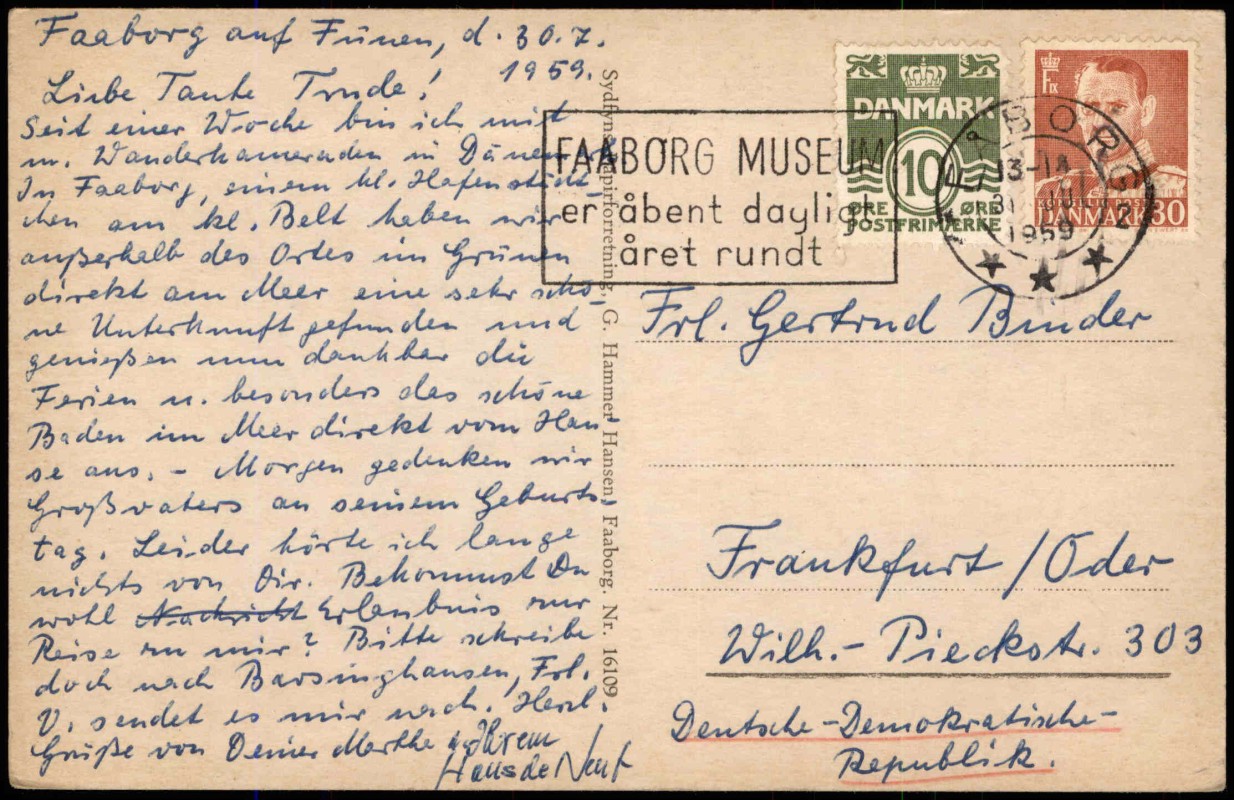 Faaborg auf Fünen, d. 30.7.
1959.
Liebe Tante Trude!
Seit einer Woche bin ich mit
m. Wanderkameraden in Dänemark
In Faaborg, einem kl. Hafenstädt-
chen am kl. Belt haben wir
außerhalb des Ortes im Grünen
direkt am Meer eine sehr schö-
ne Unterkunft gefunden und
genießen nun dankbar die
Ferien u. besonders das schöne
Baden im Meer direkt vom Hau-
se aus. - Morgen gedenken wir
Großvaters an seinem Geburts-
tag. Leider hörte ich lange
nichts von Dir. Bekommst Du
wohl Nachricht Erlaubnis zur
Reise zu mir? Bitte schreibe
doch nach Barsinghausen, Frl.
V. sendet es mir nach. Herzl.
Grüße von Deiner Marthe u. Ihrem
Hans
Sydfyns Papirforretning, G. Hammer Hansen, Faaborg. Nr. 16109
FAABORG MUSEUM
er åbent dagligt
året rundt
DANMARK
10
ØRE ØRE
POSTFRIMÆRKE
FIX
KONGELIG POST
DANMARK 30
FÅBORG
13-14
31 JULI
1959
2
Frl. Gertrud Binder
Frankfurt/Oder
Wilh.-Pieckstr. 303
Deutsche-Demokratische-
Republik.